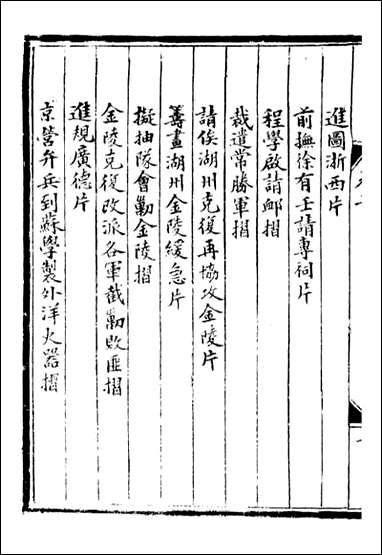 進圖浙西片
前撫徐有壬請專祠片
程學啟請䘏摺
裁遣常勝軍摺
請俟湖州克復再協攻金陵片
籌畫湖州金陵緩急片
擬抽隊會勦金陵摺
金陵克復改派各軍截勦敗匪摺
進規廣德片
京營弁兵到蘇學製外洋火器摺